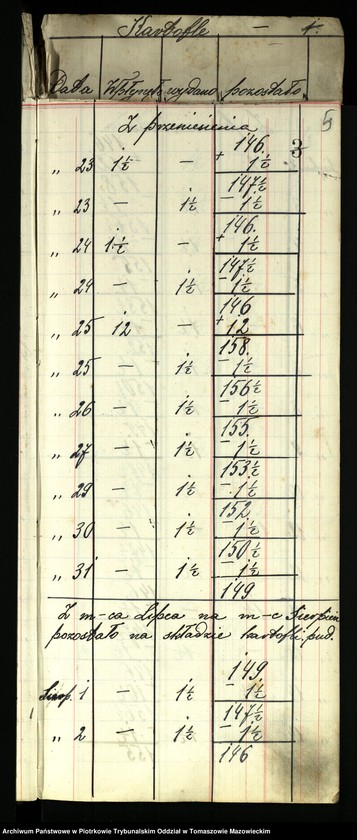 Kartofle — 4.
Data Wpłynęło wydano pozostało.
5
Z przeniesienia
146. 3
„ 23 1½ — + 1½
147½
„ 23 — 1½ — 1½
146.
„ 24 1½ — + 1½
147½
„ 24 — 1½ — 1½
146
„ 25 12 — + 12
158.
„ 25 — 1½ 1½
156½
„ 26 — 1½ — 1½
155.
„ 27 — 1½ — 1½
153½
„ 29 — 1½ — 1½
152
„ 30 — 1½ — 1½
150½
„ 31 — 1½ — 1½
149
Z m-ca Lipca na m-c Sierpień
pozostało na składzie kartofli pud.
149
Sierp. 1 — 1½ — 1½
147½
„ 2 — 1½ — 1½
146
Archiwum Państwowe w Piotrkowie Trybunalskim Oddział w Tomaszowie Mazowieckim